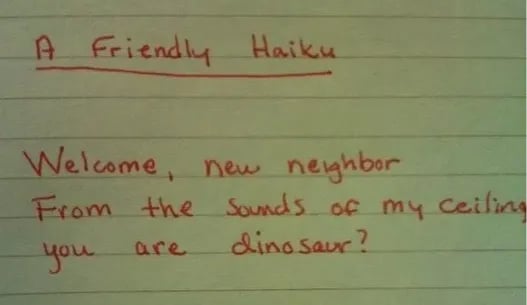 A Friendly Haiku
Welcome, new neighbor
From the sounds of my ceiling
you are dinosaur?